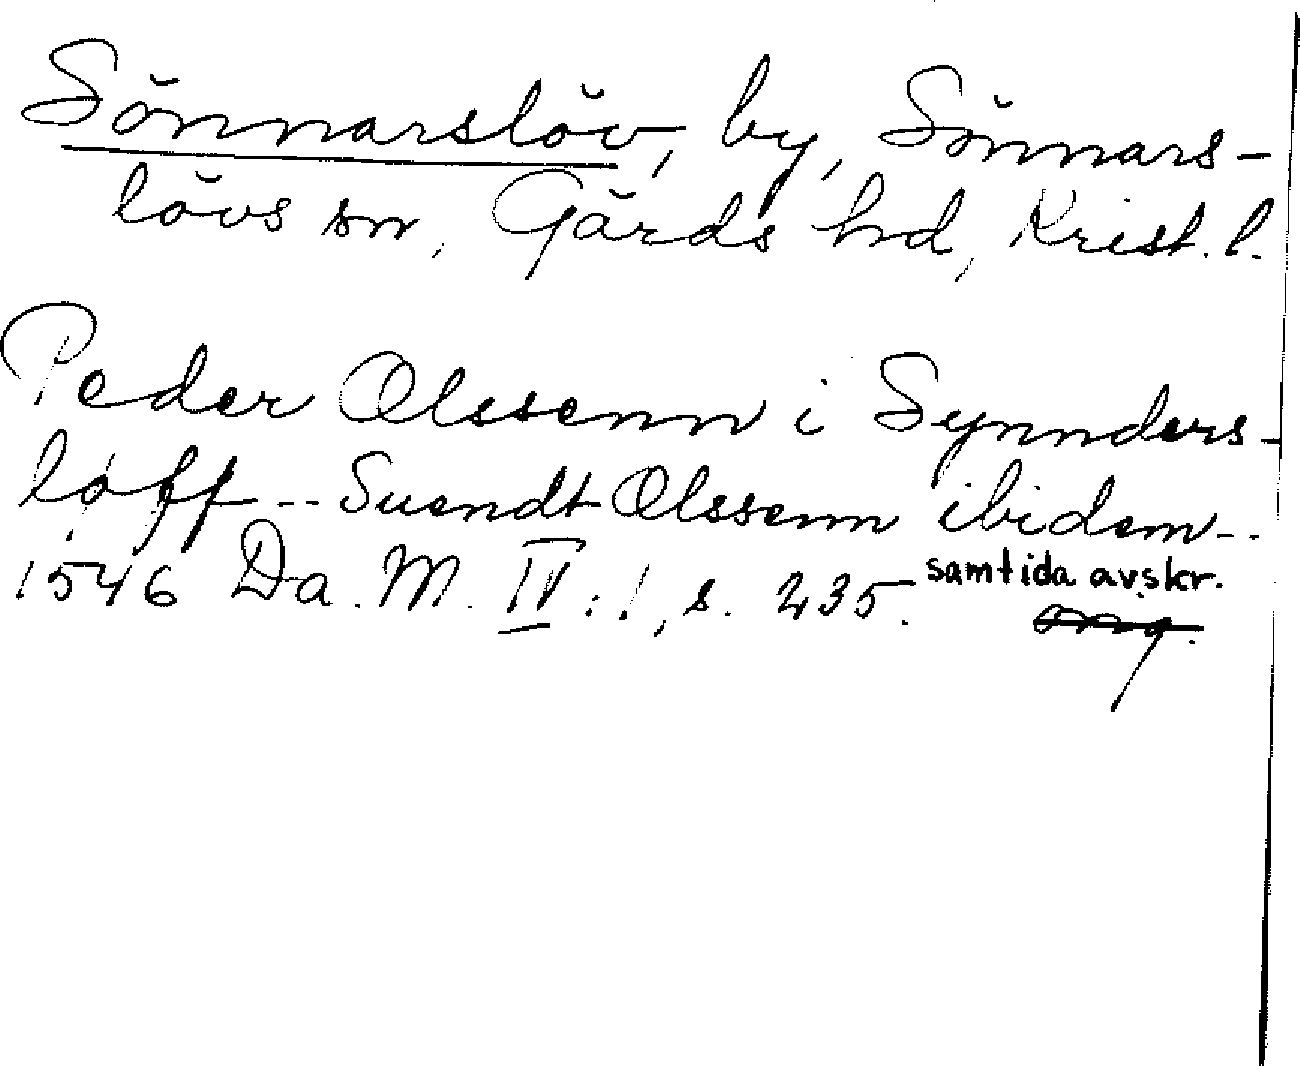 Sönnarslöv, by, Sönnars-
lövs sn, Gärds hd, Krist. l.
Peder Olssenn i Synnders-
løff -- Suendt Olssenn ibidem --
1546 Da. M. IV : 1, s. 235. samtida avskr.